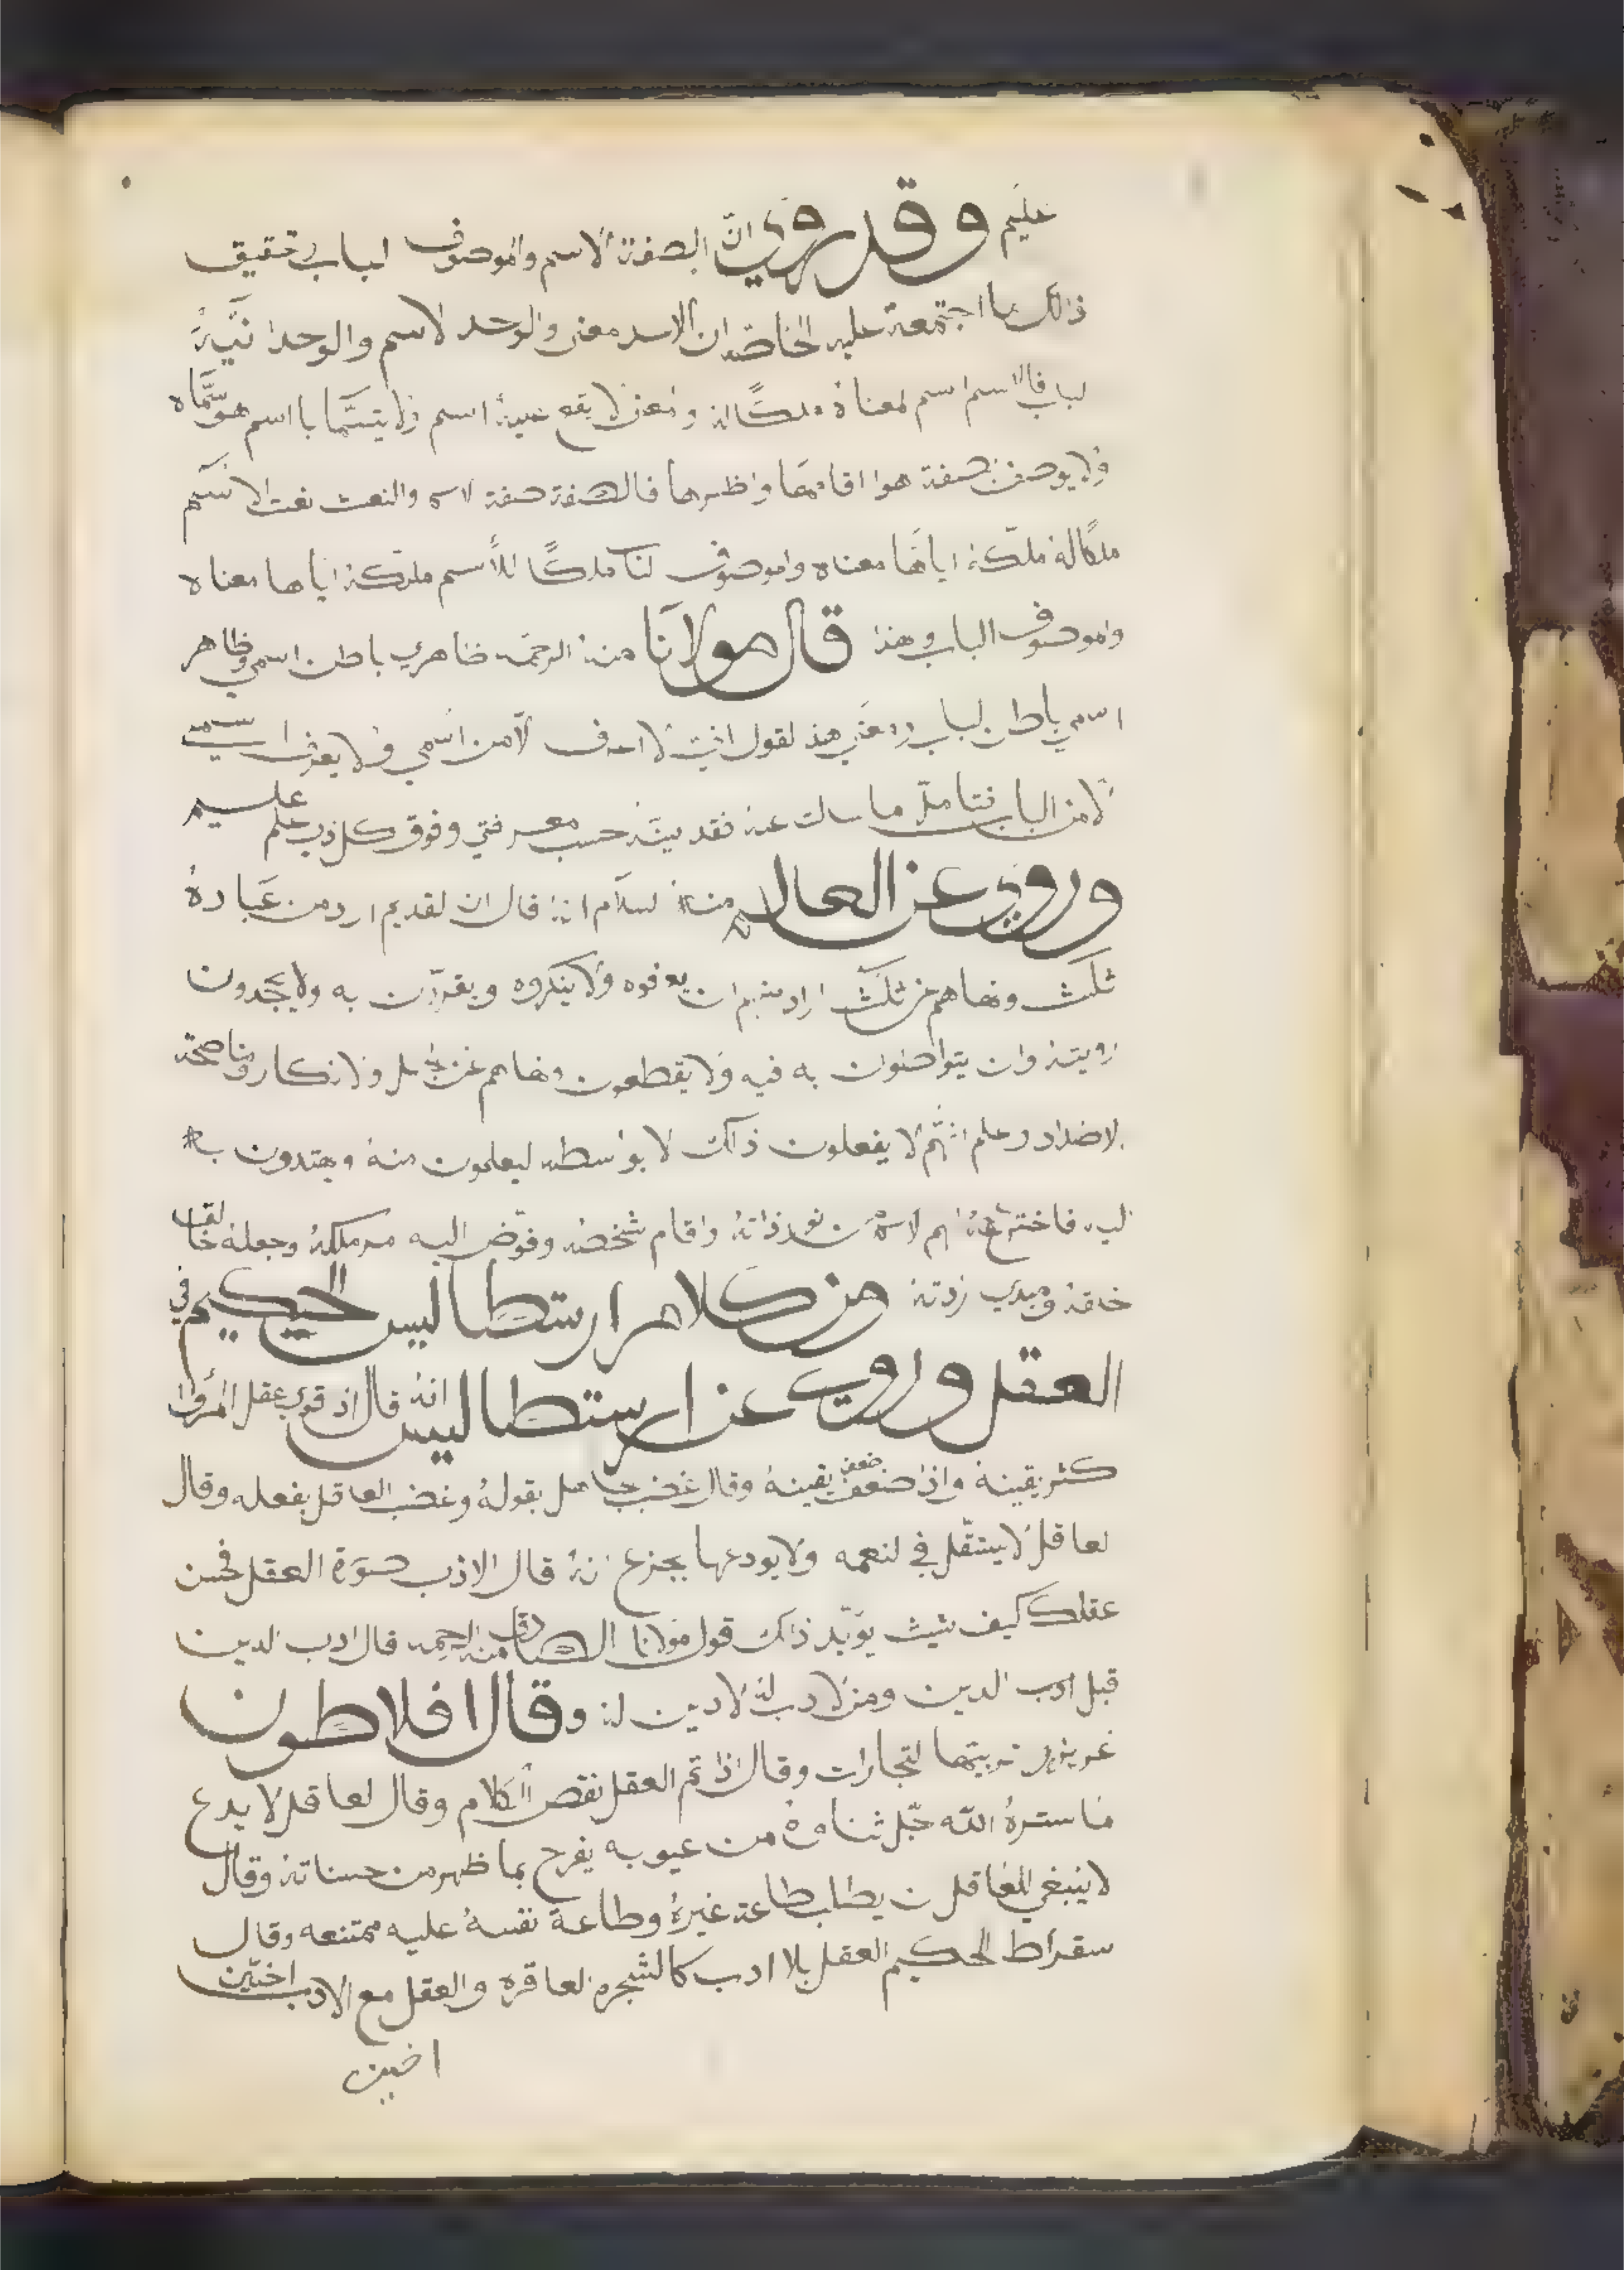 عليم وقد روي ان الصفة الاسم والموصوف الباب وتحقيق
ذالك ما اجتمعة عليه الخاصه ان الاسد معنى والوحد لاسم والوحدانيَّة
لباب فالاسم اسم لمعناه ملكًا له ومعنى لا يقع عليه اسم ولا يتسمَّا بااسم هو سمَّاه
ولا يوصف بصفة هوا اقامها واظهرها فالصفة صفة لاسم والنعت نعت الاسم
ملكًا له ملكه اياها معناه واموصوف لنا ملكًا للأسم ملكه اياها معناه
واموصوف الباب وهذا قال مولانا منه الرحمه ظاهري باطن اسمي وظاهر
اسمي باطن لباب ومعنى هذ لقول انني لا اعرف لا من اسمي ولا يعرف اسمي
لا من الباب فتامل ما سالت عنه فقد بينته حسب معرفتي وفوق كل ذي علم عليم
وروي عن العالم منه لسلام انه قال ان لقديم اراد من عباده
ثلث ونهاهم عن ثلث اراد منهم ان يعرفوه ولا ينكروه ويقرّون به ولا يجحدون
رويته وان يتواصلون به فيه ولا يقطعون ونهاهم عن لجهل ولانكار ومناصحة
لاضداد وعلم انهم لا يفعلون ذالك لا بواسطه ليعلمون منه ويهتدون به
ليه فاختر لهم لاسم من نور ذاته واقام شخصه وفوّض اليه امر ملكه وجعله خالق
خلقه ومبدي من كلام ارستطاليس الحكيم في
العقل وروي عن ارستطاليس انه قال اذ قوي عقل المرؤ
كثر يقينه واذا ضعف ضعف يقينه وقال غضب لجاهل بقوله وغضب العاقل بفعله وقال
لعاقل لا يستقل في لنعمه ولا يودعها بجزع نه قال الادب صورة العقل فحسن
عقلك كيف شيت يؤيد ذالك قول مولانا الصادق منه الرحمه قال ادب الدين
قبل ادب الدين ومن لا ادب له لا دين له وقال افلاطون
تربيتها لتجارات وقال اذا تم العقل نقص الكلام وقال لعاقل لا يدع
ما ستره الله جّل ثناه من عيوبه يفرح بما ظهر من حسناته وقال
لا ينبغي للعاقل ن يطلب طاعة غيره وطاعة نفسه عليه ممتنعه وقال
سقراط الحكيم العقل بلا ادب كالشجره لعاقره والعقل مع الادب اخين
اخين